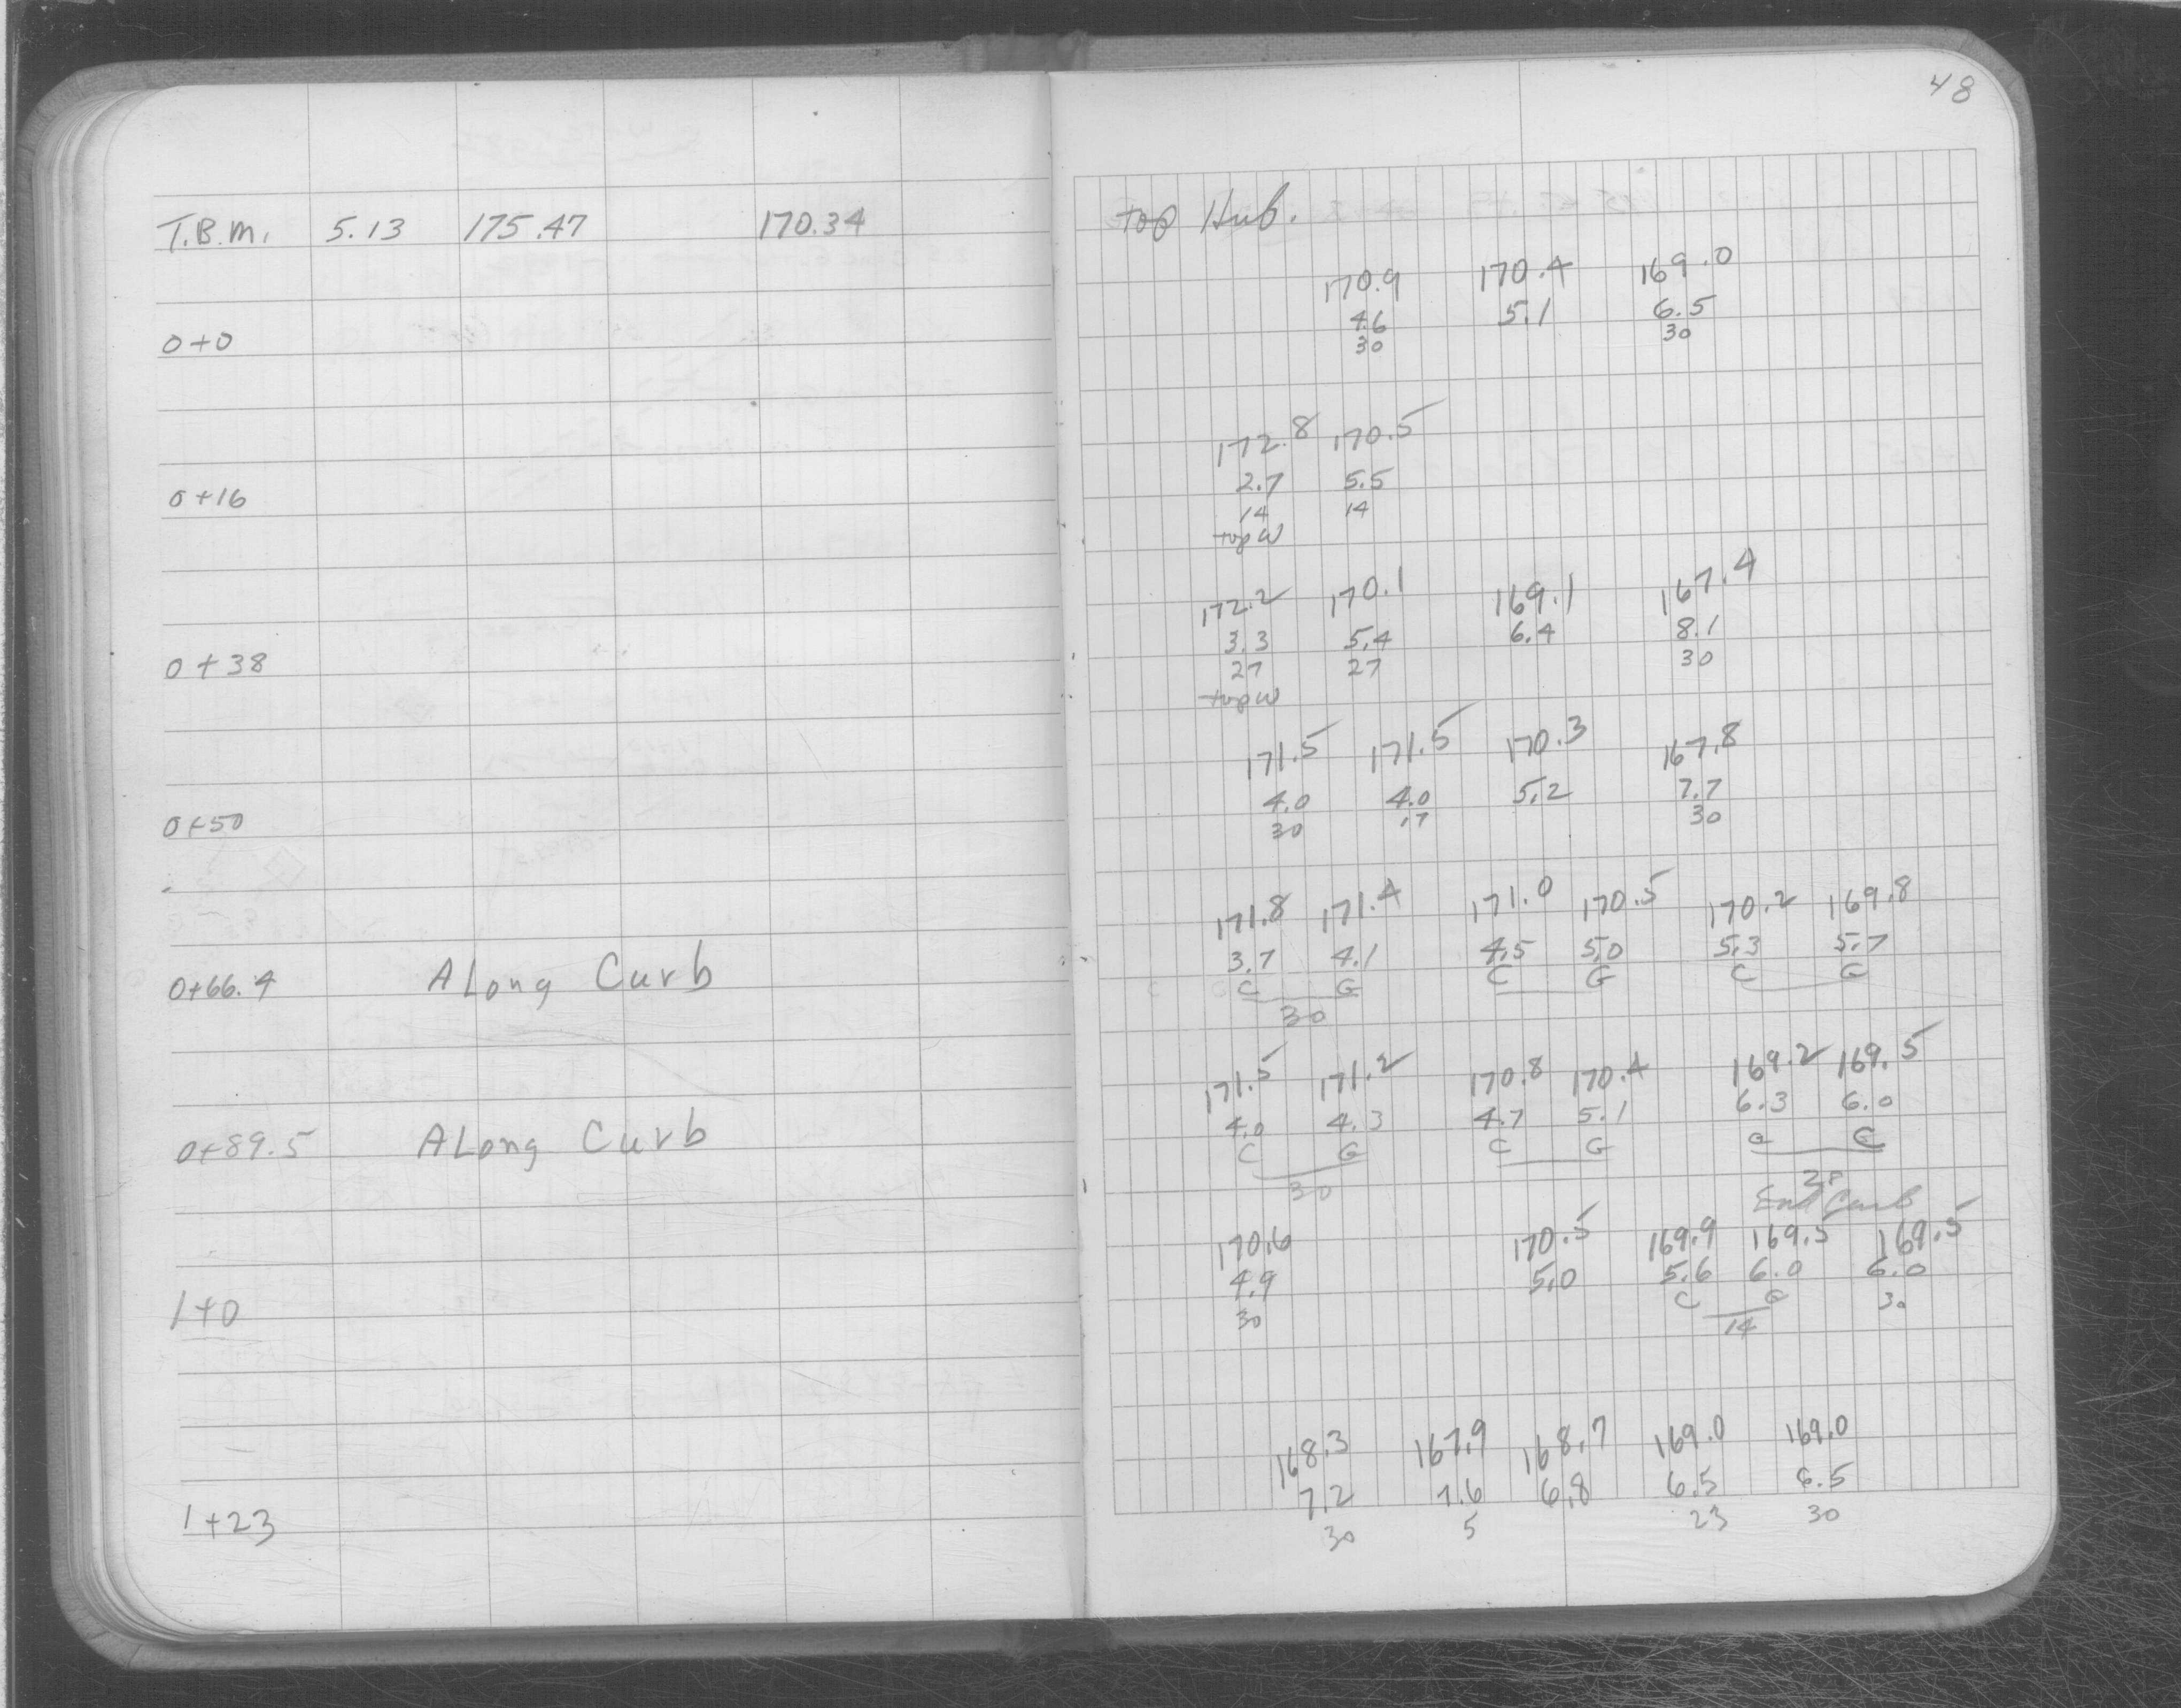 48
T.B.M. 5.13 175.47 170.34 top Hub.
170.9 170.4 169.0
4.6 5.1 6.5
0+0 30 30
172.8 170.5
2.7 5.5
0+16 14 14
top W
172.2 170.1 169.1 167.4
3.3 5.4 6.4 8.1
0+38 27 27 30
top W
171.5 171.5 170.3 167.8
4.0 4.0 5.2 7.7
0+50 30 17 30
171.8 171.4 171.0 170.5 170.2 169.8
3.7 4.1 4.5 5.0 5.3 5.7
0+66.4 ALong Curb C G C G C G
30
171.5 171.2 170.8 170.4 169.2 169.5
4.0 4.3 4.7 5.1 6.3 6.0
0+89.5 ALong Curb C G C G G C
30
End Curb
170.6 170.5 169.9 169.5 169.5
4.9 5.0 5.6 6.0 6.0
1+0 30 C G 30
14
168.3 167.9 168.7 169.0 169.0
7.2 7.6 6.8 6.5 6.5
1+23 30 5 23 30